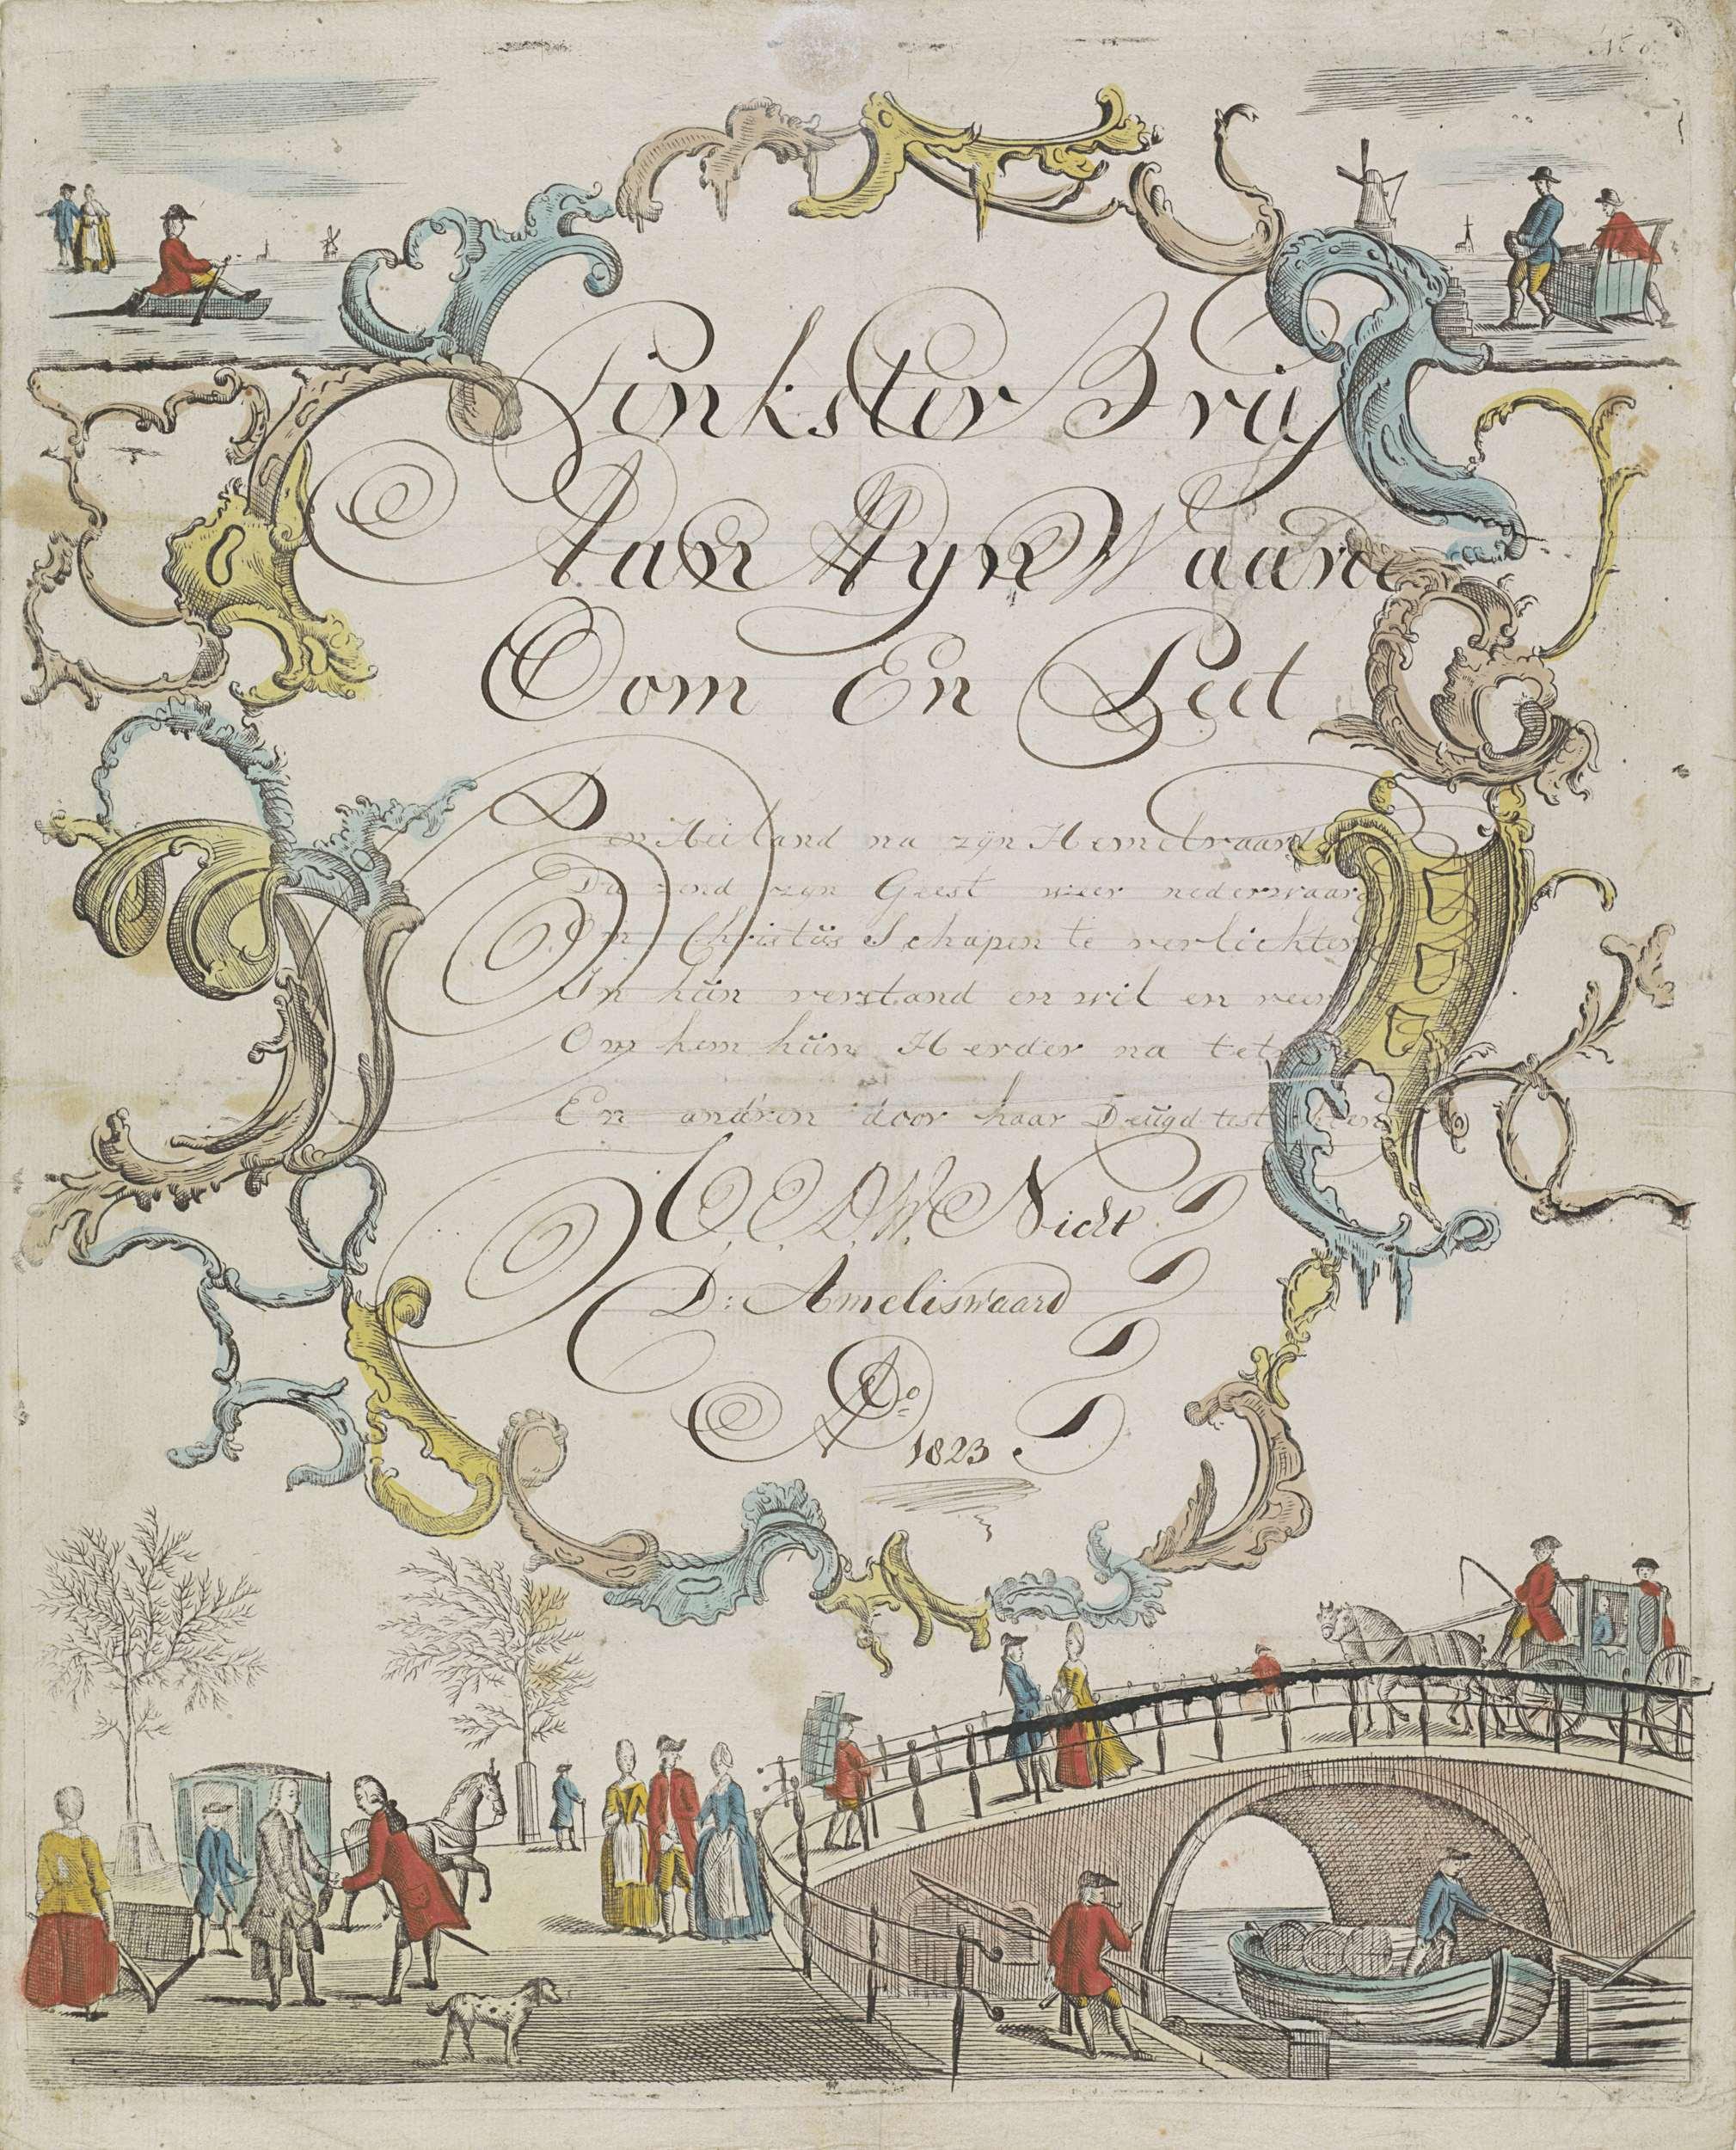 No 6
Pinkster Brief
Aan Myn Waarde
Oom En Peet
Den Heiland na zijn Hemelvaard
Die zend zijn Geest weer nederwaard
Om Christüs Schapen te verlichten
In hün verstand en wil en
Om hem hün Herder na
En and'ren door haar Deugd
U, E, D, W, Nicht
D: Ameliswaard
Ao
1823